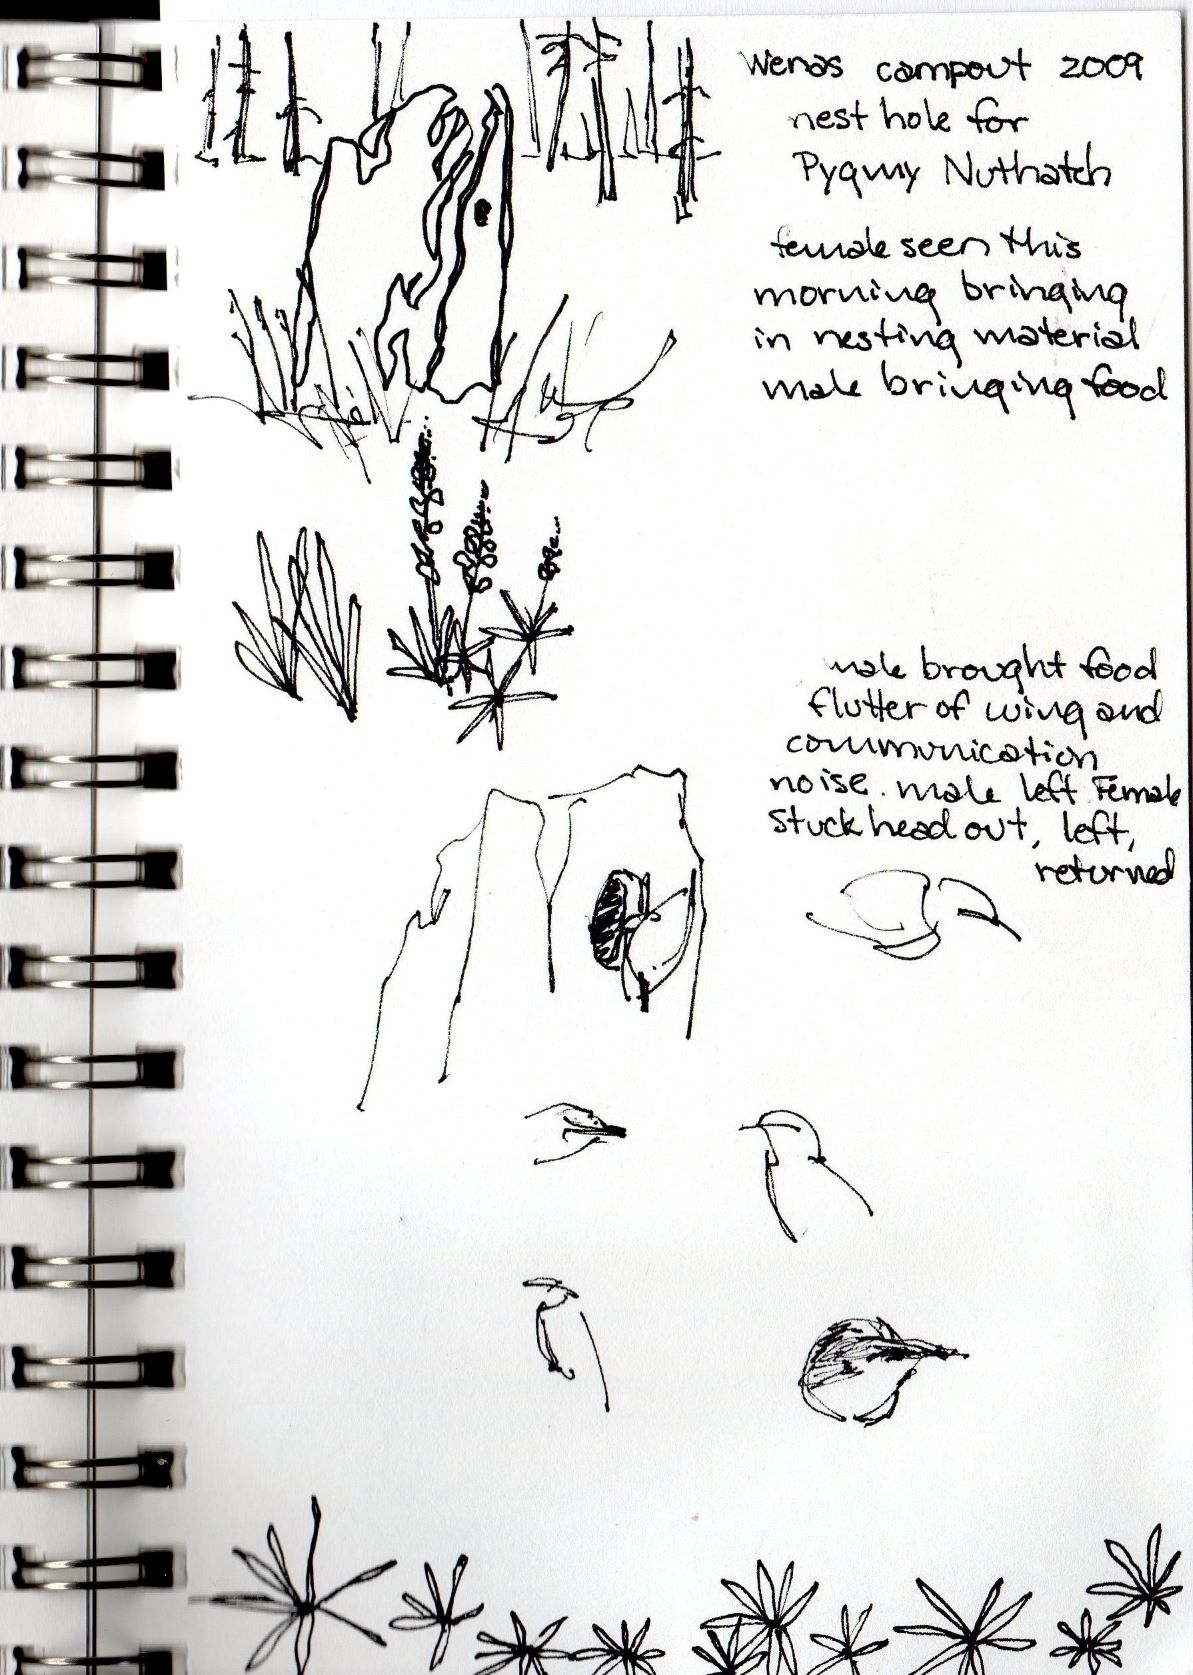 Wenas campout 2009
nest hole for
Pygmy Nuthatch
female seen this
morning bringing
in nesting material
male bringing food
male brought food
flutter of wing and
communication
noise. male left. Female
stuck head out, left,
returned